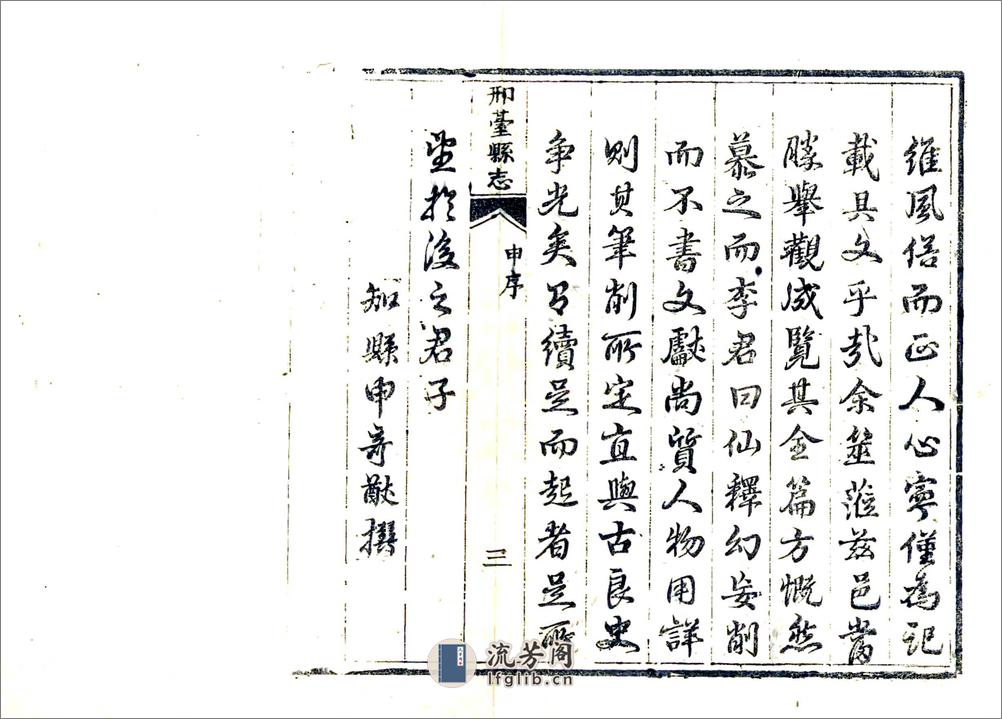 維風俗而正人心寧僅為記
載具文乎哉余筮蒞茲邑嘗
勝舉觀成覽其全篇方慨然
慕之而李君曰仙釋幻妄削
而不書文獻尚質人物用詳
則其筆削所定直與古良史
爭光矣若續是而起者是所
邢臺縣志
申序
三
望於後之君子
知縣申奇猷撰
流芳阁
lfglib.cn